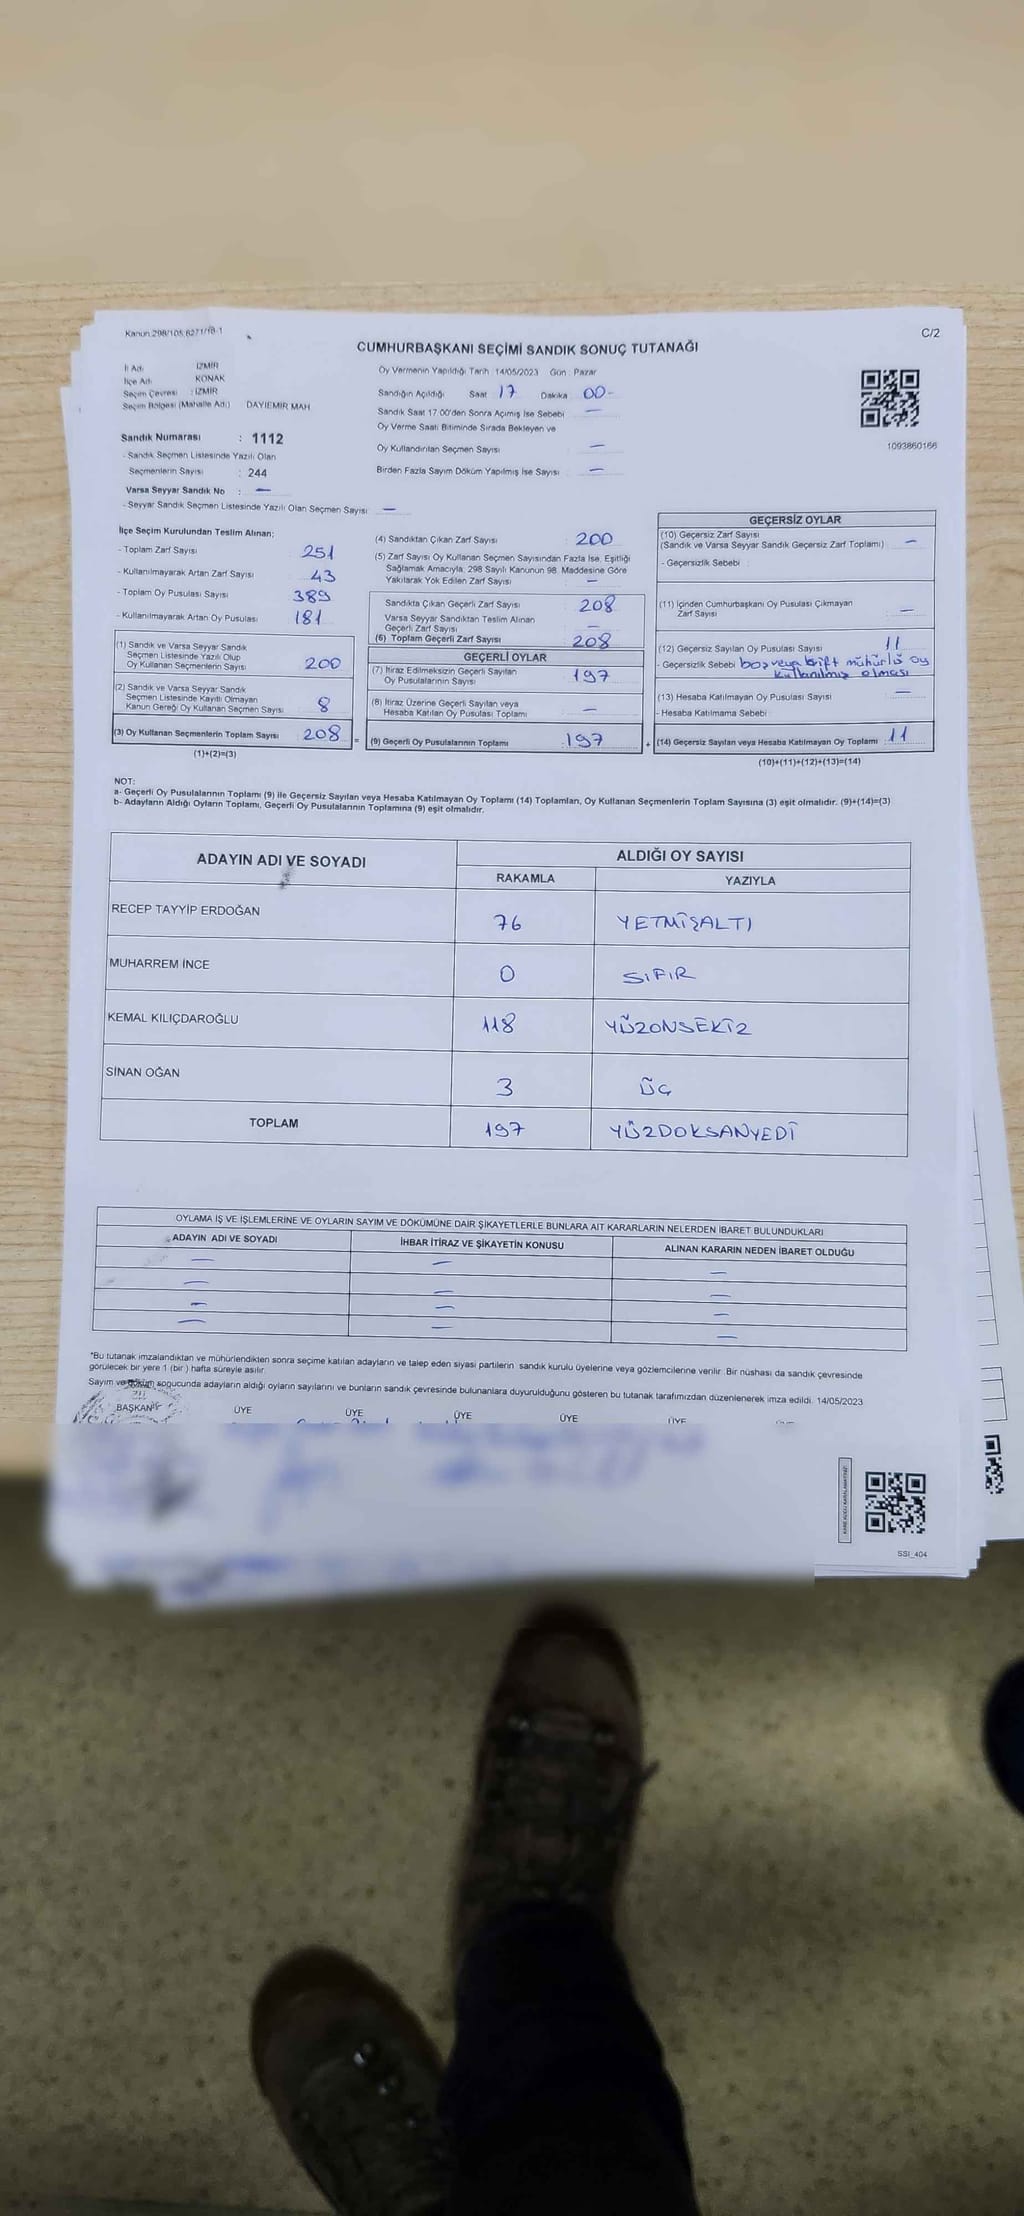 Kanun:298/105;6271/18-1
C/2
CUMHURBAŞKANI SEÇİMİ SANDIK SONUÇ TUTANAĞI
İl Adı : İZMİR
İlçe Adı : KONAK
Seçim Çevresi : İZMİR
Seçim Bölgesi (Mahalle Adı) : DAYIEMİR MAH
Sandık Numarası : 1112
- Sandık Seçmen Listesinde Yazılı Olan
Seçmenlerin Sayısı : 244
Varsa Seyyar Sandık No : —
- Seyyar Sandık Seçmen Listesinde Yazılı Olan Seçmen Sayısı : —
Oy Vermenin Yapıldığı Tarih : 14/05/2023 Gün : Pazar
Sandığın Açıldığı Saat 17 Dakika 00-
Sandık Saat 17.00'den Sonra Açımış İse Sebebi —
Oy Verme Saati Bitiminde Sırada Bekleyen ve
Oy Kullandırılan Seçmen Sayısı —
Birden Fazla Sayım Döküm Yapılmış İse Sayısı —
1093860166
İlçe Seçim Kurulundan Teslim Alınan;
- Toplam Zarf Sayısı 251
- Kullanılmayarak Artan Zarf Sayısı 43
- Toplam Oy Pusulası Sayısı 389
- Kullanılmayarak Artan Oy Pusulası 181
(1) Sandık ve Varsa Seyyar Sandık
Seçmen Listesinde Yazılı Olup
Oy Kullanan Seçmenlerin Sayısı 200
(2) Sandık ve Varsa Seyyar Sandık
Seçmen Listesinde Kayıtlı Olmayan
Kanun Gereği Oy Kullanan Seçmen Sayısı 8
(3) Oy Kullanan Seçmenlerin Toplam Sayısı 208
(1)+(2)=(3)
(4) Sandıktan Çıkan Zarf Sayısı 200
(5) Zarf Sayısı Oy Kullanan Seçmen Sayısından Fazla İse, Eşitliği
Sağlamak Amacıyla, 298 Sayılı Kanunun 98. Maddesine Göre
Yakılarak Yok Edilen Zarf Sayısı —
Sandıkta Çıkan Geçerli Zarf Sayısı 208
Varsa Seyyar Sandıktan Teslim Alınan
Geçerli Zarf Sayısı —
(6) Toplam Geçerli Zarf Sayısı 208
GEÇERLİ OYLAR
(7) İtiraz Edilmeksizin Geçerli Sayılan
Oy Pusulalarının Sayısı 197
(8) İtiraz Üzerine Geçerli Sayılan veya
Hesaba Katılan Oy Pusulası Toplamı —
= (9) Geçerli Oy Pusulalarının Toplamı 197
GEÇERSİZ OYLAR
(10) Geçersiz Zarf Sayısı
(Sandık ve Varsa Seyyar Sandık Geçersiz Zarf Toplamı) —
- Geçersizlik Sebebi :
(11) İçinden Cumhurbaşkanı Oy Pusulası Çıkmayan
Zarf Sayısı —
(12) Geçersiz Sayılan Oy Pusulası Sayısı 11
- Geçersizlik Sebebi boş veya çift mühürlü oy
kullanılmış olması
(13) Hesaba Katılmayan Oy Pusulası Sayısı —
- Hesaba Katılmama Sebebi
+ (14) Geçersiz Sayılan veya Hesaba Katılmayan Oy Toplamı 11
(10)+(11)+(12)+(13)=(14)
NOT:
a- Geçerli Oy Pusulalarının Toplamı (9) ile Geçersiz Sayılan veya Hesaba Katılmayan Oy Toplamı (14) Toplamları, Oy Kullanan Seçmenlerin Toplam Sayısına (3) eşit olmalıdır. (9)+(14)=(3)
b- Adayların Aldığı Oyların Toplamı, Geçerli Oy Pusulalarının Toplamına (9) eşit olmalıdır.
ADAYIN ADI VE SOYADI
ALDIĞI OY SAYISI
RAKAMLA YAZIYLA
RECEP TAYYİP ERDOĞAN 76 YETMİŞALTI
MUHARREM İNCE 0 SIFIR
KEMAL KILIÇDAROĞLU 118 YÜZONSEKİZ
SİNAN OĞAN 3 ÜÇ
TOPLAM 197 YÜZDOKSANYEDİ
OYLAMA İŞ VE İŞLEMLERİNE VE OYLARIN SAYIM VE DÖKÜMÜNE DAİR ŞİKAYETLERLE BUNLARA AİT KARARLARIN NELERDEN İBARET BULUNDUKLARI
ADAYIN ADI VE SOYADI İHBAR İTİRAZ VE ŞİKAYETİN KONUSU ALINAN KARARIN NEDEN İBARET OLDUĞU
— — —
— — —
— — —
— — —
*Bu tutanak imzalandıktan ve mühürlendikten sonra seçime katılan adayların ve talep eden siyasi partilerin sandık kurulu üyelerine veya gözlemcilerine verilir. Bir nüshası da sandık çevresinde
görülecek bir yere 1 (bir) hafta süreyle asılır.
Sayım ve döküm sonucunda adayların aldığı oyların sayılarını ve bunların sandık çevresinde bulunanlara duyurulduğunu gösteren bu tutanak tarafımızdan düzenlenerek imza edildi. 14/05/2023
BAŞKAN ÜYE ÜYE ÜYE ÜYE ÜYE
SSI_404